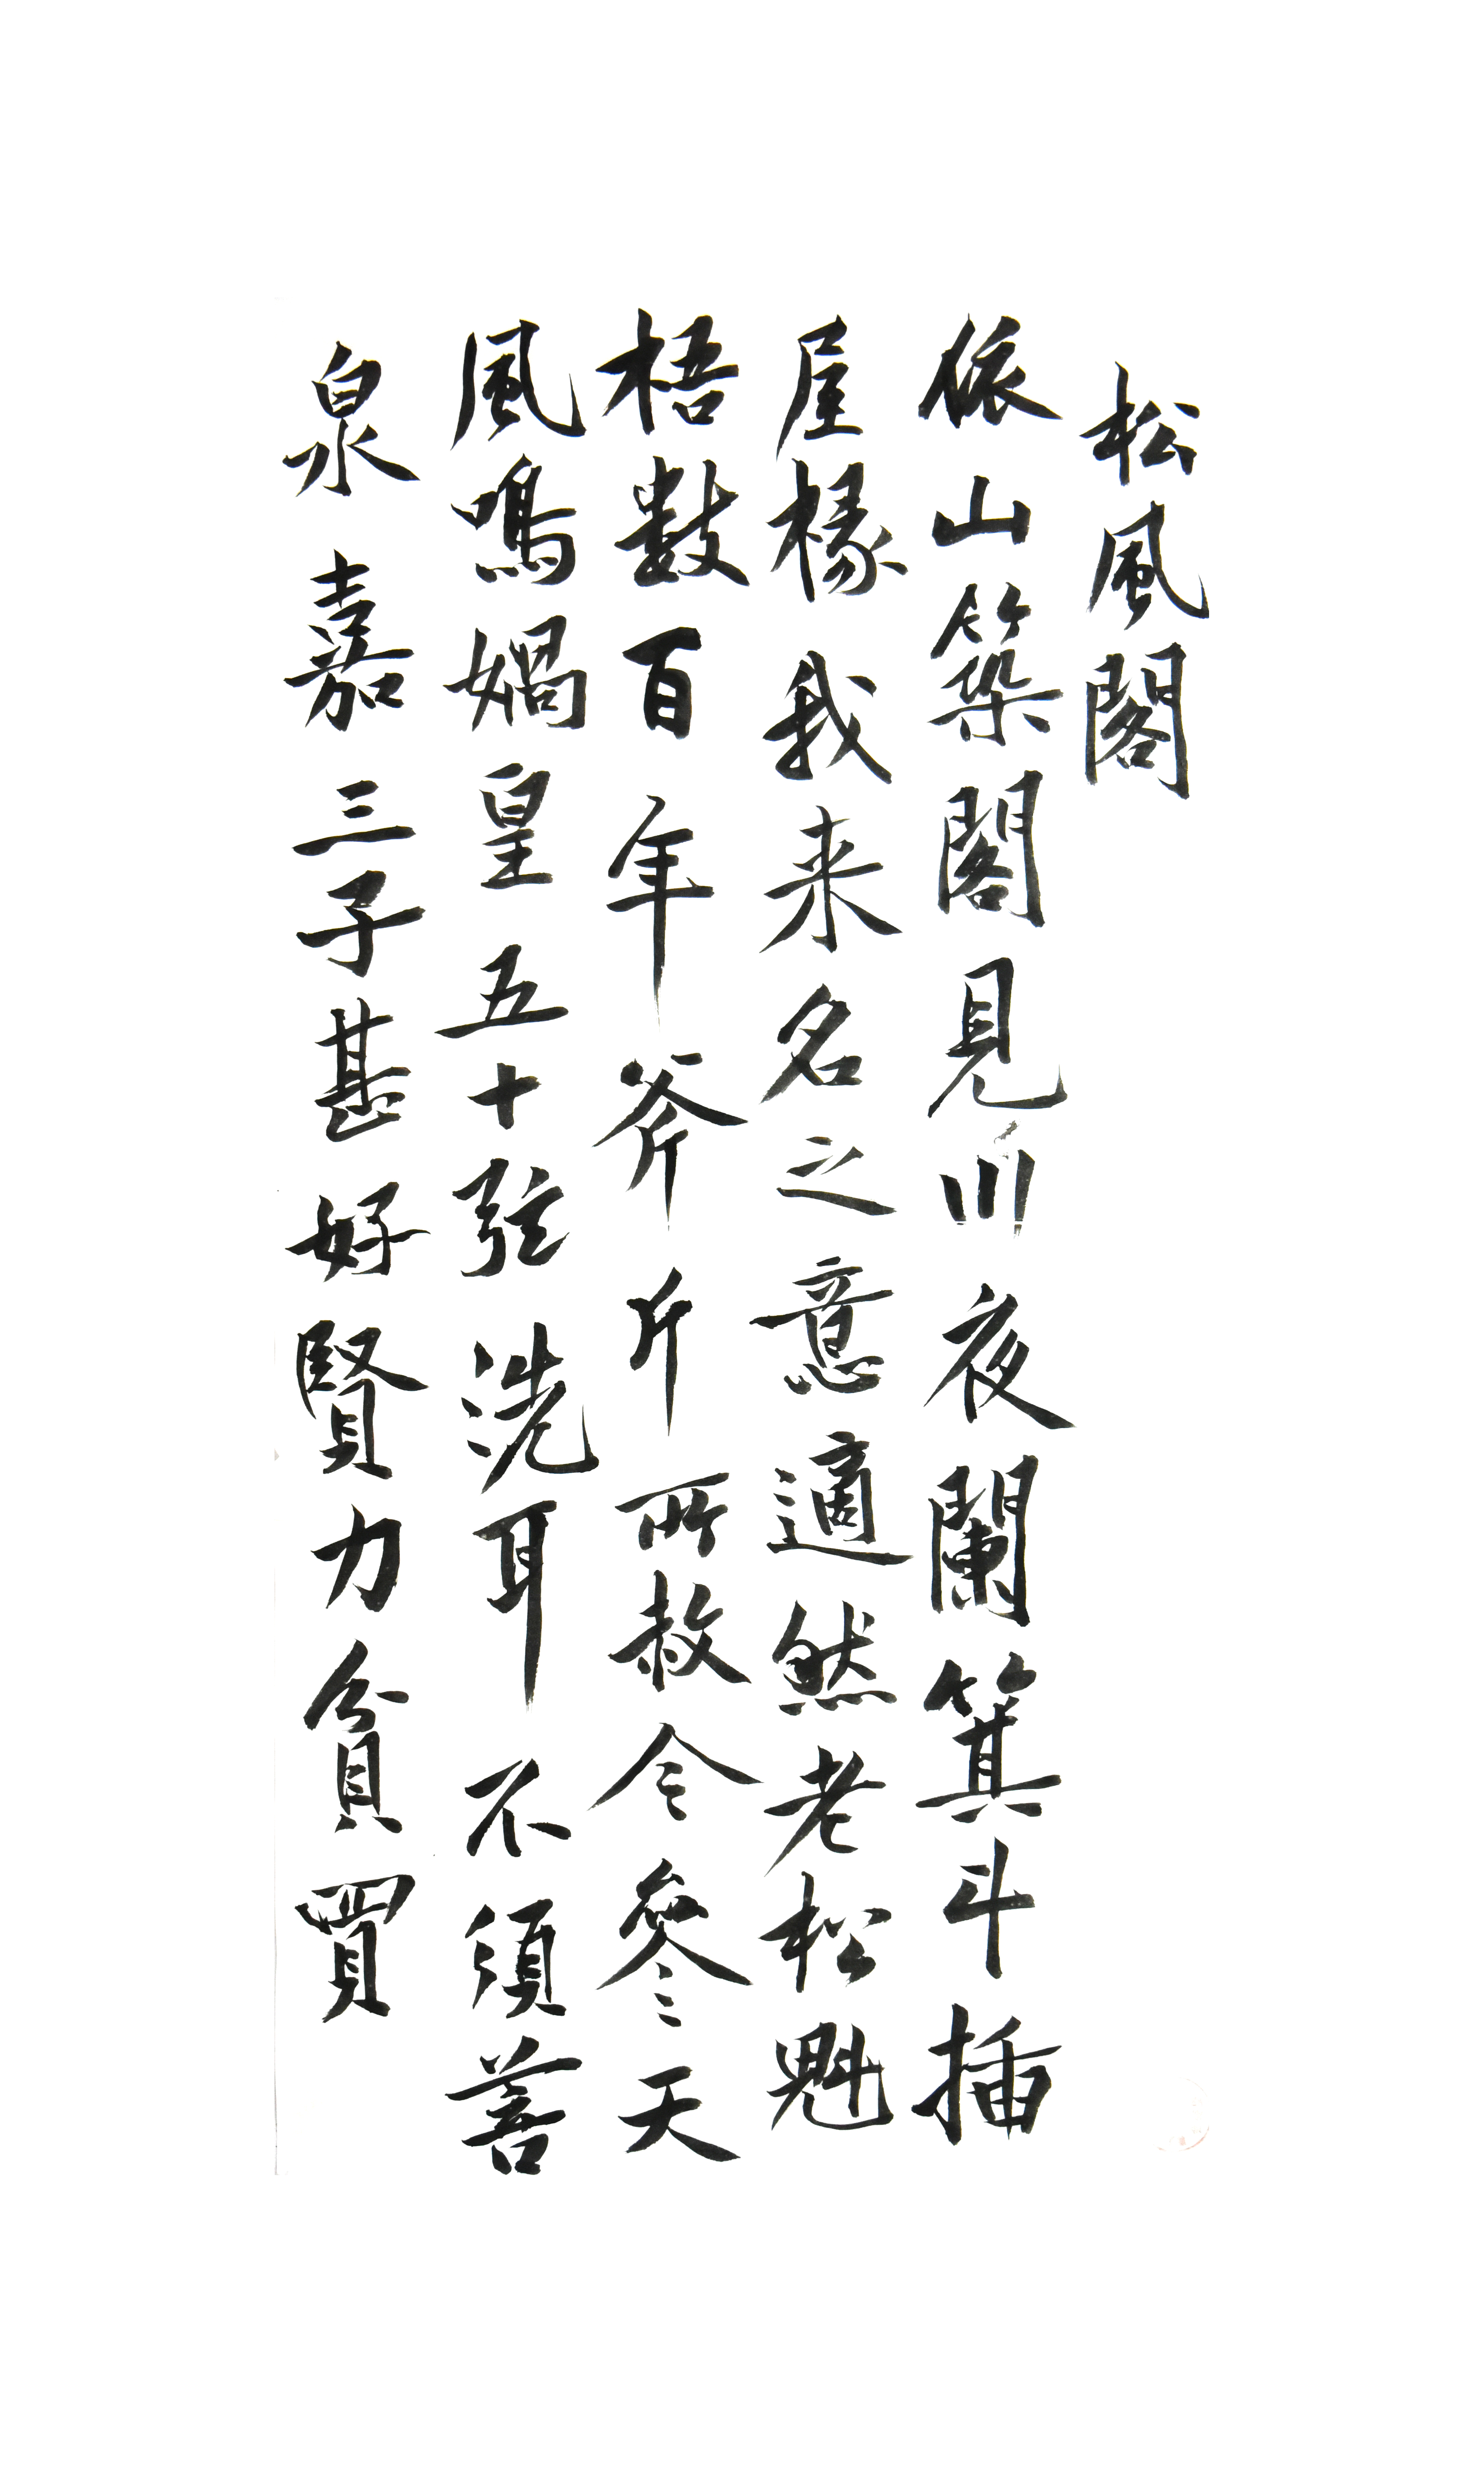 松風閣
依山築閣見川夜闌箕斗插
屋椽我来名之意適然老松魁
梧數百年斧斤所赦今參天
風鳴媧皇五十弦洗耳不須菩
泉嘉二三子甚好賢力貧買